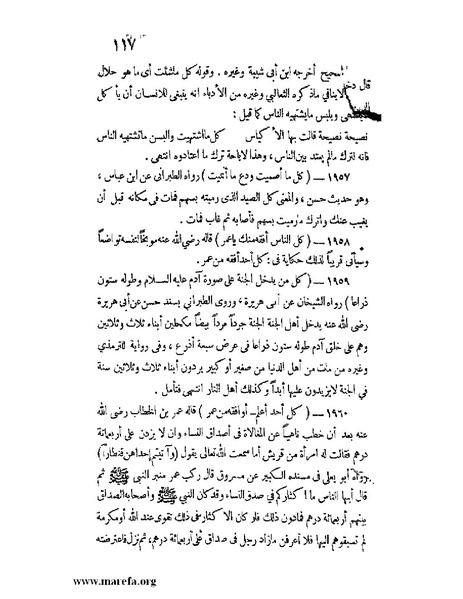 ١١٧
الصحيح أخرجه ابن أبى شيبة وغيره . وقوله كل ماشئت أى ما هو حلال
قال
لاينافي ماذكره الثعالبي وغيره من الأدباء انه ينبغى للانسان أن يأكل
ويلبس مايشتهيه الناس كما قيل :
نصيحة نصيحة قالت بها الأكياس كل مااشتهيت والبس ماتشتهيه الناس
فانه لترك مالم يعتد بين الناس ، وهذا لاباحة ترك ما اعتادوه انتهى .
١٩٥٧ — ( كل ما أصميت ودع ما أنميت ) رواه الطبرانى عن ابن عباس ،
وهو حديث حسن ، والمعنى كل الصيد الذى رميته بسهم فمات فى مكانه قبل أن
يغيب عنك واترك مارميت بسهم فأصابه ثم غاب فمات .
١٩٥٨ — ( كل الناس أفقه منك ياعمر ) قاله رضى الله عنه موبخاً لنفسه تواضعاً
وسيأتى قريباً لذلك حكاية فى : كل أحد أفقه من عمر .
١٩٥٩ — ( كل من يدخل الجنة على صورة آدم عليه السلام وطوله ستون
ذراعا ) رواه الشيخان عن أبى هريرة ، وروى الطبرانى بسند حسن عن أبى هريرة
رضى الله عنه يدخل أهل الجنة الجنة جرداً مرداً بيضاً مكحلين أبناء ثلاث وثلاثين
وهم على خلق آدم طوله ستون ذراعا فى عرض سبعة أذرع ، وفى رواية للترمذى
وغيره من مات من أهل الدنيا من صغير أو كبير يردون أبناء ثلاث وثلاثين سنة
في الجنة لايزيدون عليها أبداً وكذلك أهل النار انتهى فتأمل .
١٩٦٠ — ( كل أحد أعلم أو أفقه من عمر ) قاله عمر بن الخطاب رضى الله
عنه بعد أن خطب ناهياً عن المغالاة فى أصداق النساء وان لا يزدن على أربعمائة
درهم فقالت له امرأة من قريش أما سمعت الله تعالى يقول ( وآتيتم إحداهن قنطاراً )
رواه أبو يعلى فى مسنده الكبير عن مسروق قال ركب عمر منبر النبى ﷺ ثم
قال أيها الناس ما إكثاركم فى صدق النساء وقد كان النبى ﷺ وأصحابه الصداق
بينهم أربعمائة درهم فمادون ذلك فلو كان الاكثار فى ذلك تقوى عند الله أو مكرمة
لم تسبقوهم اليها فلا أعرفن مازاد رجل فى صداق على أربعمائة درهم ، ثم نزل فاعترضته
www.marefa.org